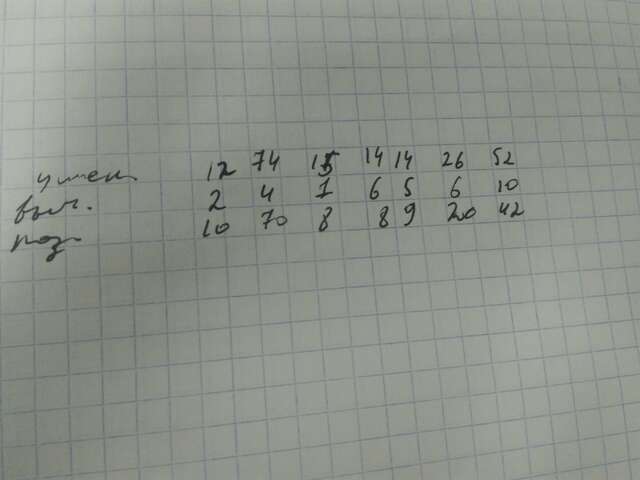 умен. 12 74 15 14 14 26 52
выч. 2 4 7 6 5 6 10
раз. 10 70 8 8 9 20 42